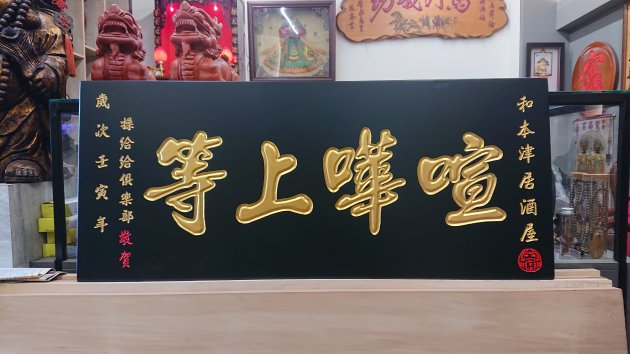 和本津居酒屋
喧嘩上等
操給給俱樂部敬賀
歲次壬寅年